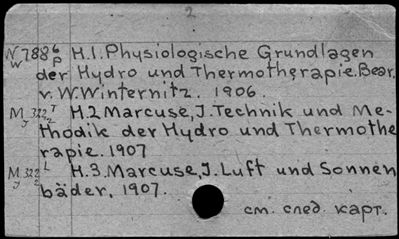 2
N 788 6/p H.1. Physiologische Grundlagen
W
der Hydro und Thermotherapie. Bear.
v. W. Winternitz. 1906.
M 322 T/2 H.2 Marcuse, J. Technik und Me-
J
thodik der Hydro und Thermothe
rapie. 1907
M 322 L/2 H.3. Marcuse, J. Luft und Sonnen
J
bäder, 1907.
см. след. карт.